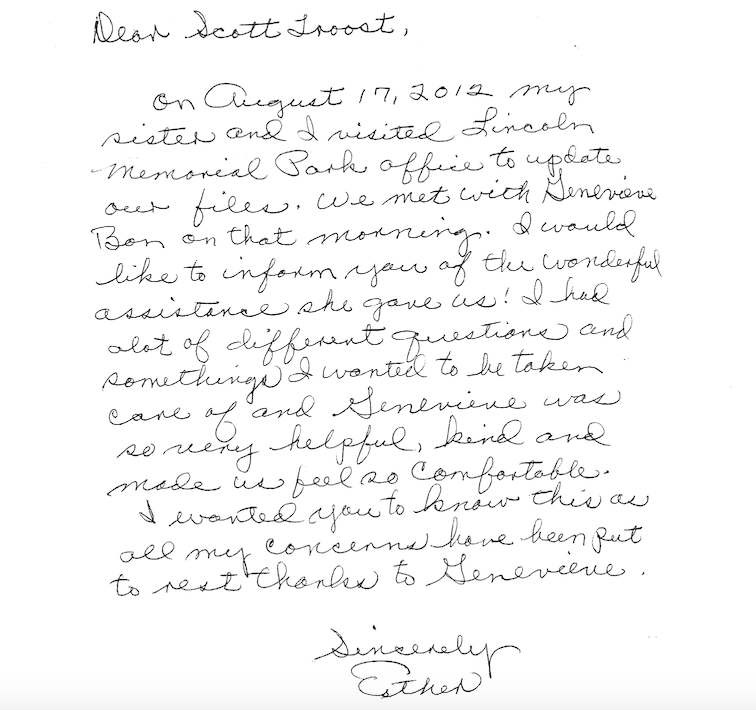 Dear Scott Troost,
on August 17, 2012 my
sister and I visited Lincoln
Memorial Park office to update
our files. We met with Genevieve
Bon on that morning. I would
like to inform you of the wonderful
assistance she gave us! I had
alot of different questions and
somethings I wanted to be taken
care of and Genevieve was
so very helpful, kind and
made us feel so comfortable.
I wanted you to know this as
all my concerns have been put
to rest thanks to Genevieve.
Sincerely
Esther